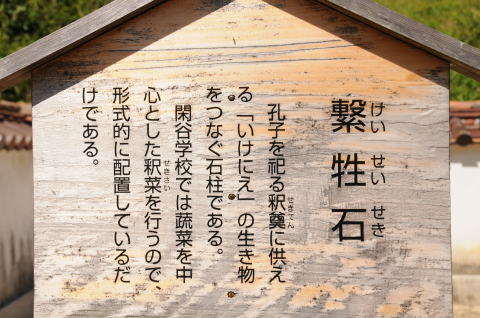 繋牲石
けい せい せき
孔子を祀る釈奠に供え
せきてん
る「いけにえ」の生き物
をつなぐ石柱である。
閑谷学校では蔬菜を中
心とした釈菜を行うので、
せきさい
形式的に配置しているだ
けである。